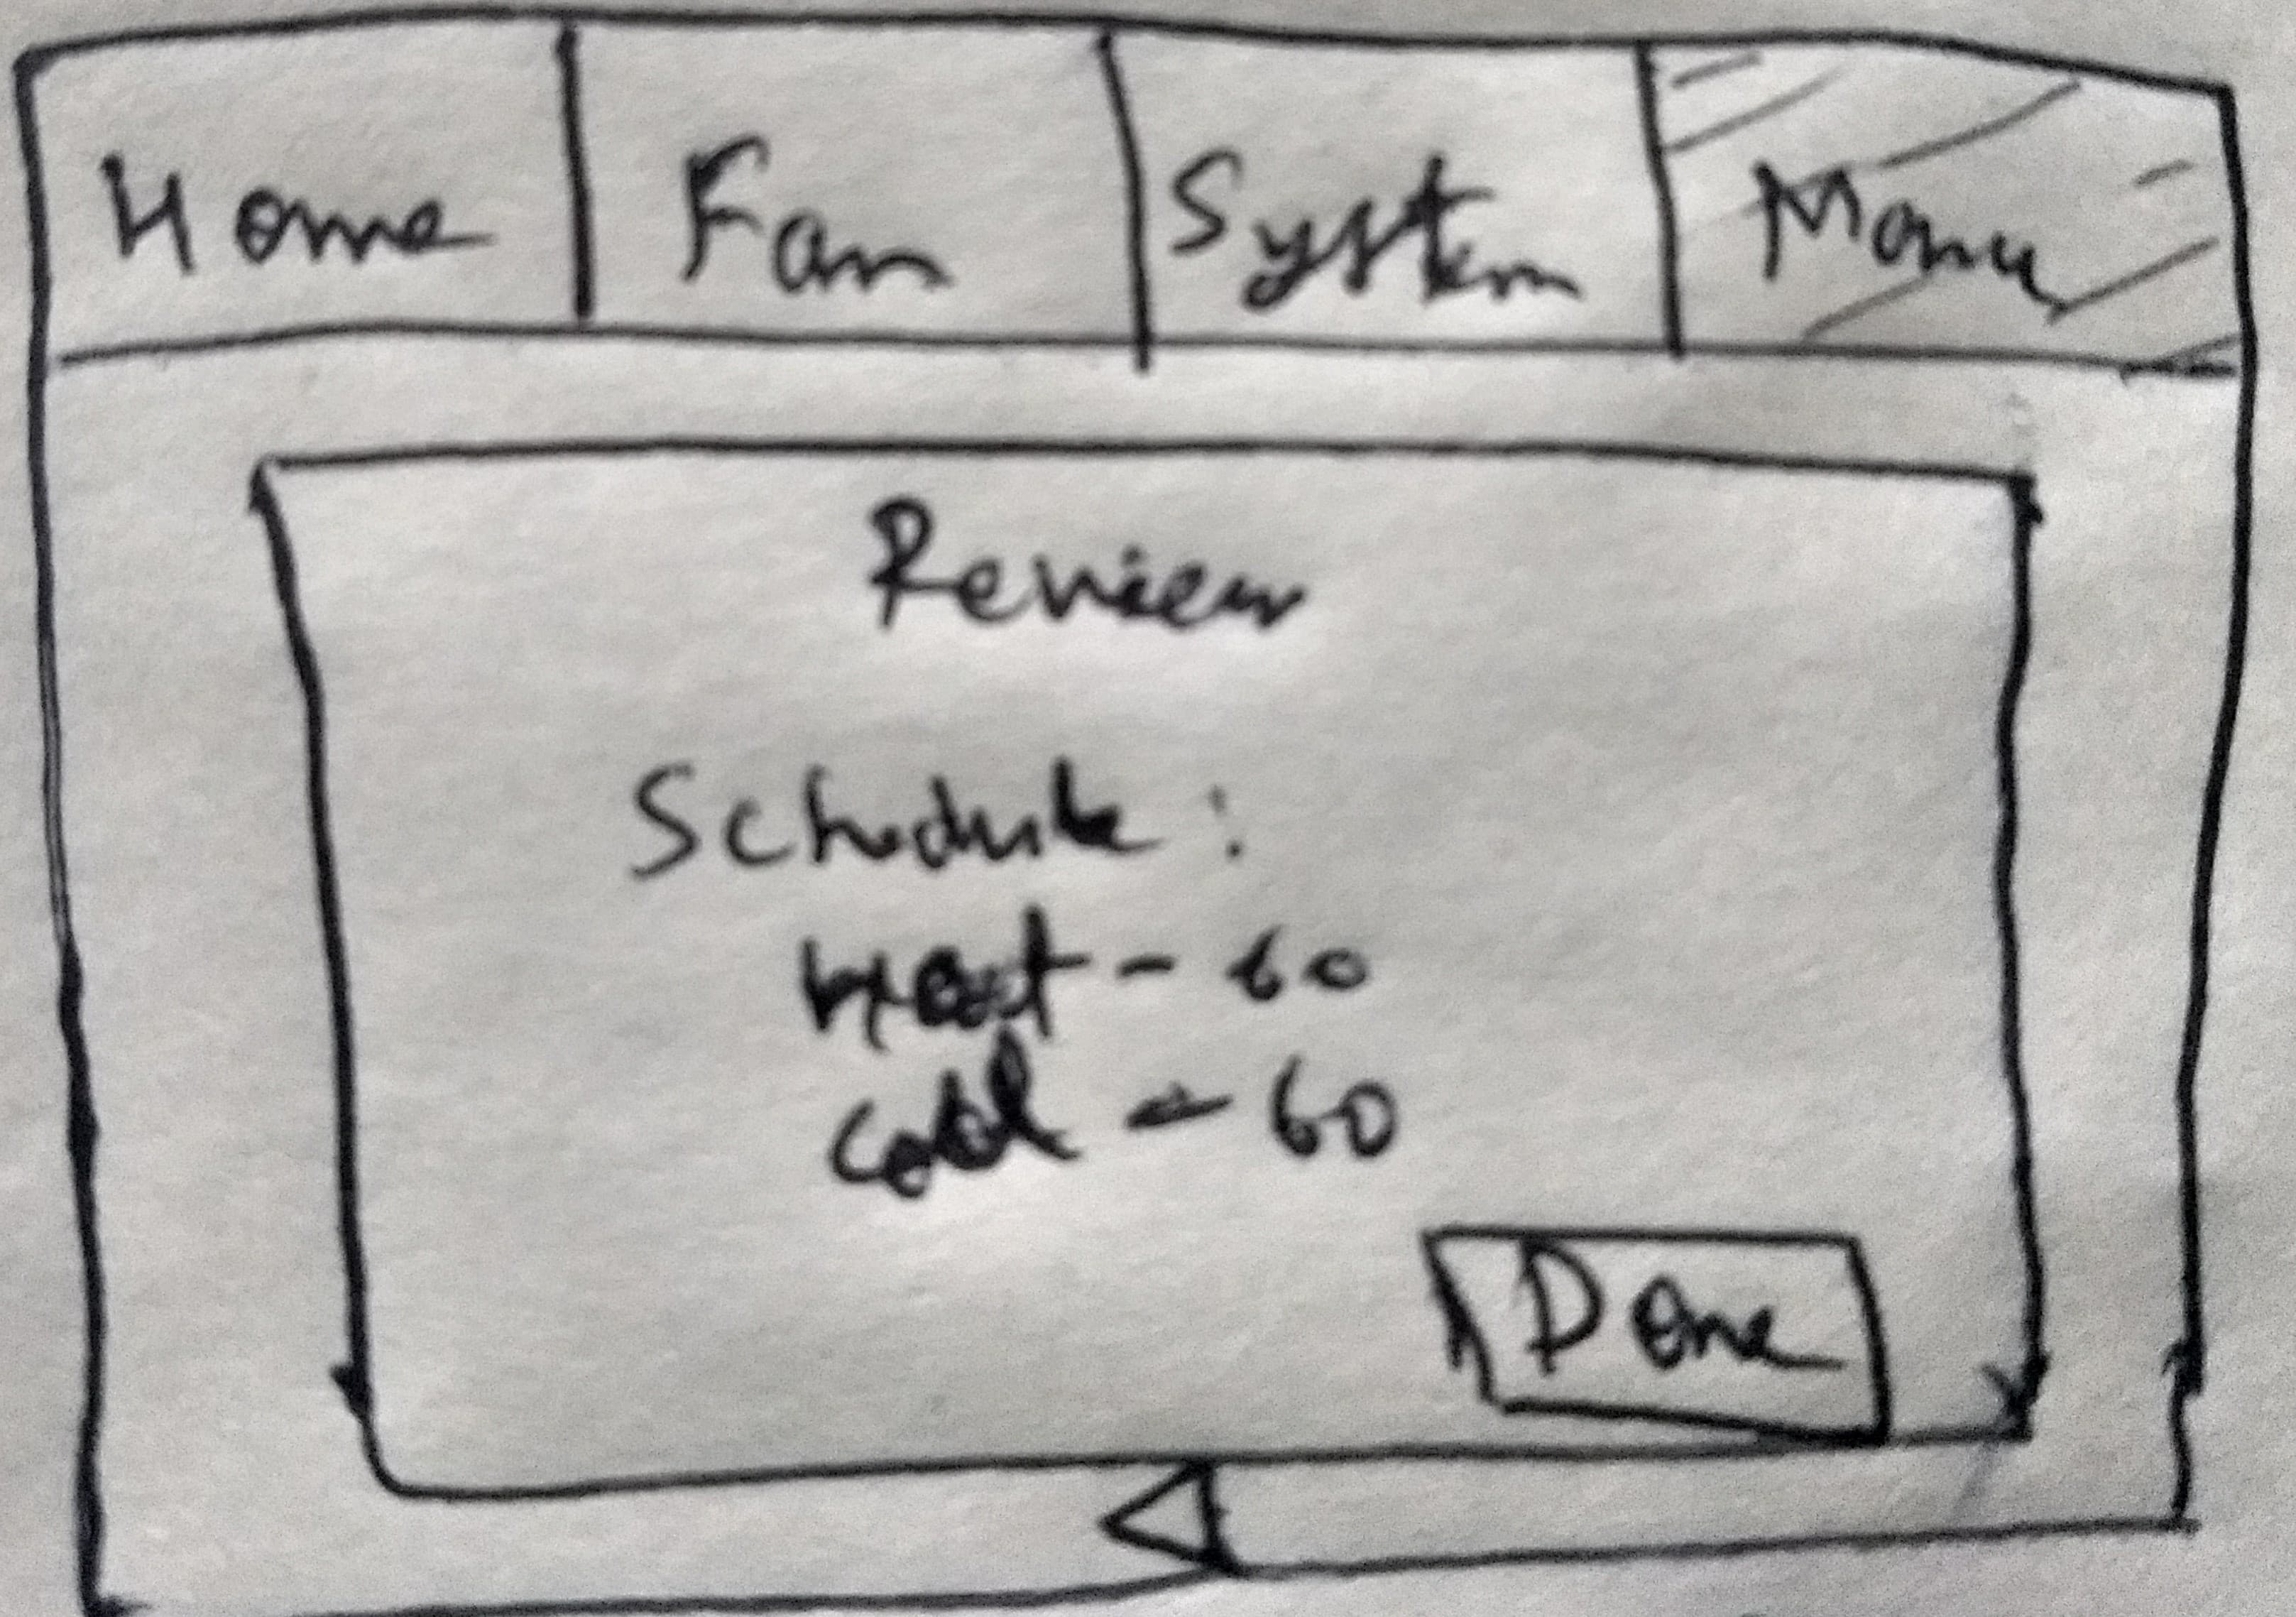 Home Fan System Menu
Review
Schedule :
Heat - 60
Cool - 60
Done